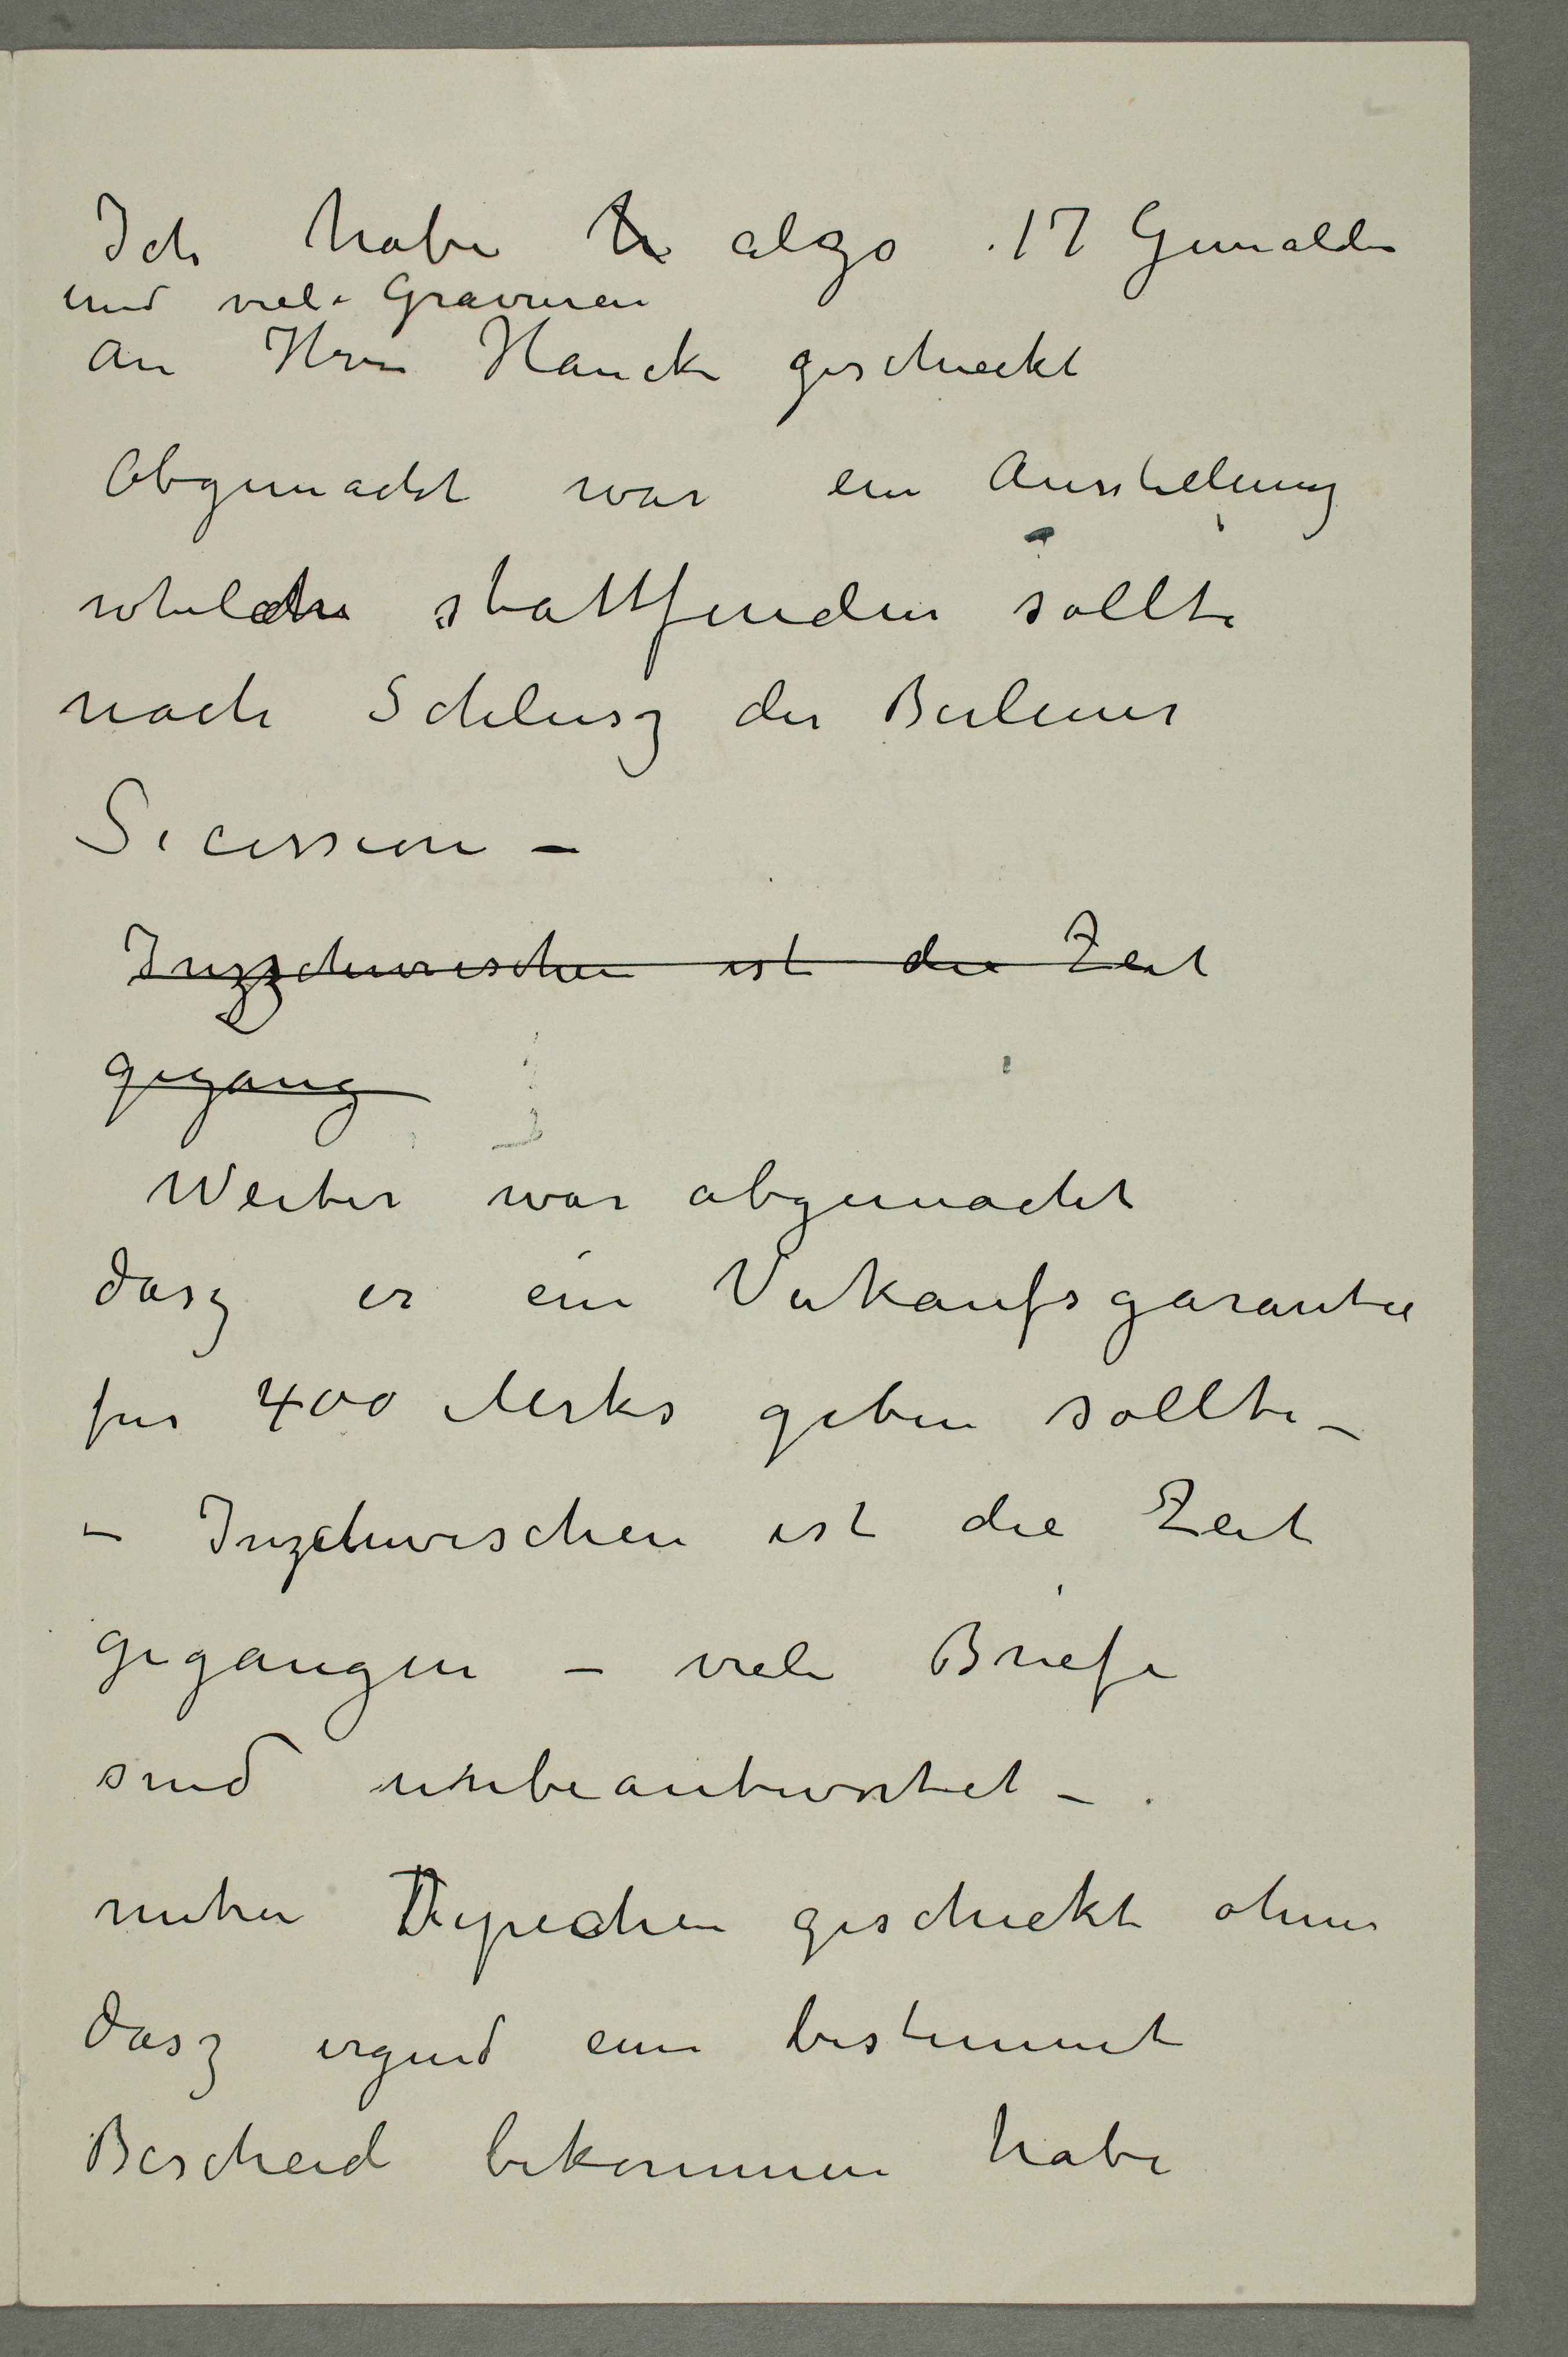 Ich habe h algo 17 Gemälde
und viele Gravuren
an Herrn Hancke geschieckt
Abgemacht war ein Austelung
whelche stattfinden sollte
nach Schlusz der Berliner
Secession –
Inzschwischen ist die Zeit
gegang
Weiter war abgemacht
dasz er ein Verkaufsgarantie
fur 400 Merks geben sollte –
– Inzchwischen ist die Zeit
gegangen – viele Briefe
sind unbeantwortet –
mehre Depechen geschickt ohne
dasz irgend eine bestimmt
Bescheid bekommen habe